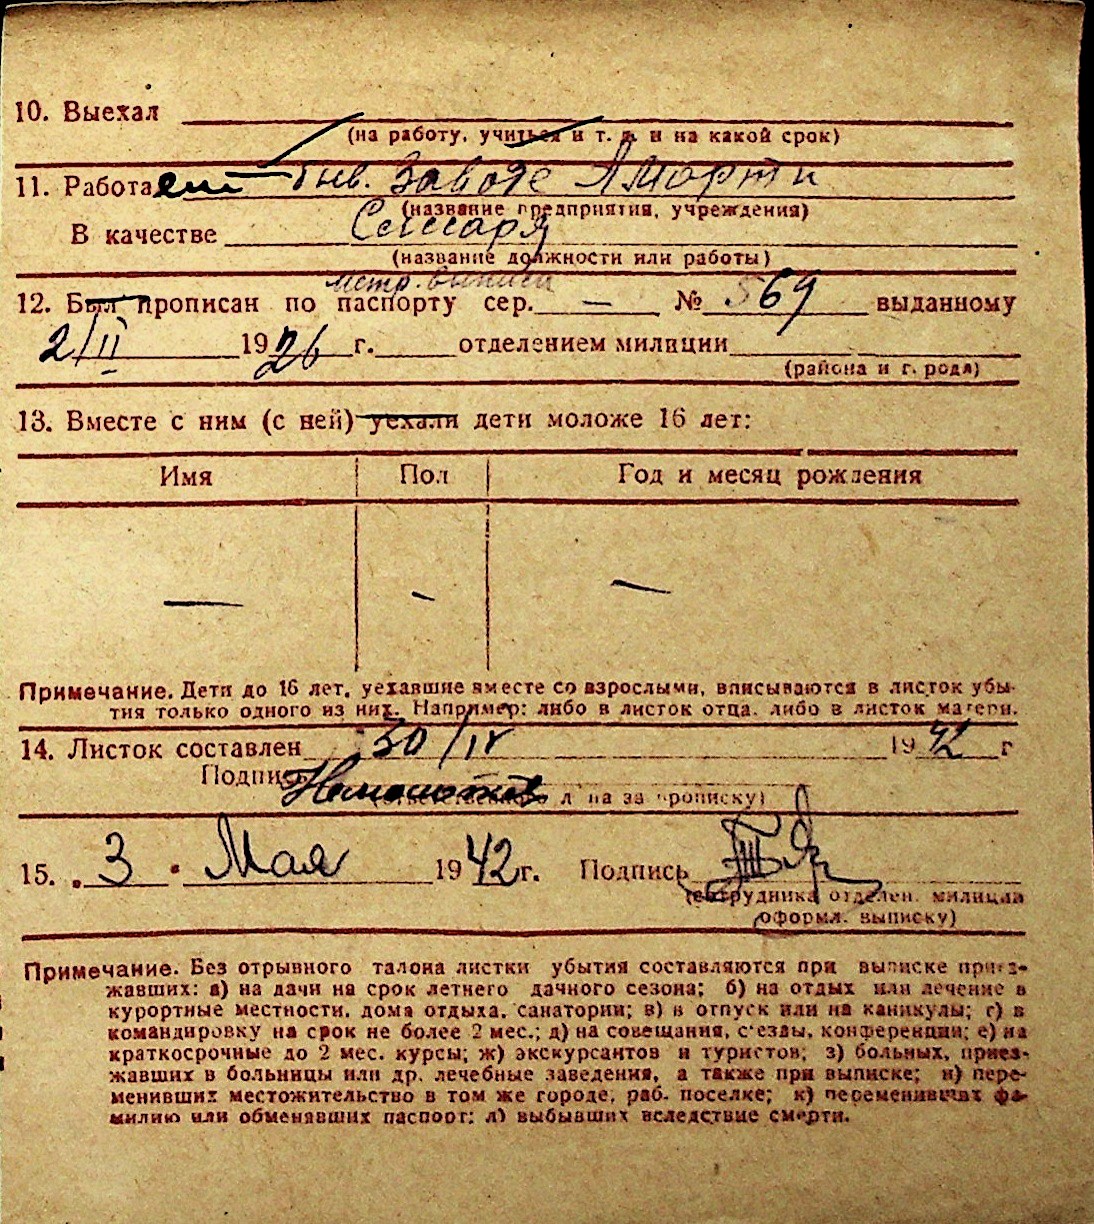 10. Выехал
(на работу, учиться и т. д. и на какой срок)
11. Работает быв. Заводе А Марти
(название предприятия, учреждения)
В качестве Слесаря
(название должности или работы)
метр. выписи
12. Был прописан по паспорту сер. — № 569 выданному
2/II 1926 г. отделением милиции
(района и города)
13. Вместе с ним (с ней) уехали дети моложе 16 лет:
Имя Пол Год и месяц рождения
— - —
Примечание. Дети до 16 лет, уехавшие вместе со взрослыми, вписываются в листок убы-
тия только одного из них. Например: либо в листок отца, либо в листок матери.
14. Листок составлен 30/IV 1942 г
Подпись
(ответственного лица за прописку)
15. „3" Мая 1942 г. Подпись
(сотрудника отделен. милиции
оформл. выписку)
Примечание. Без отрывного талона листки убытия составляются при выписке приез-
жавших: а) на дачи на срок летнего дачного сезона; б) на отдых или лечение в
курортные местности, дома отдыха, санатории; в) в отпуск или на каникулы; г) в
командировку на срок не более 2 мес.; д) на совещания, с'езды, конференции; е) на
краткосрочные до 2 мес. курсы; ж) экскурсантов и туристов; з) больных, приез-
жавших в больницы или др. лечебные заведения, а также при выписке; и) пере-
менивших местожительство в том же городе, раб. поселке; к) переменивших фа-
милию или обменявших паспорт; л) выбывших вследствие смерти.